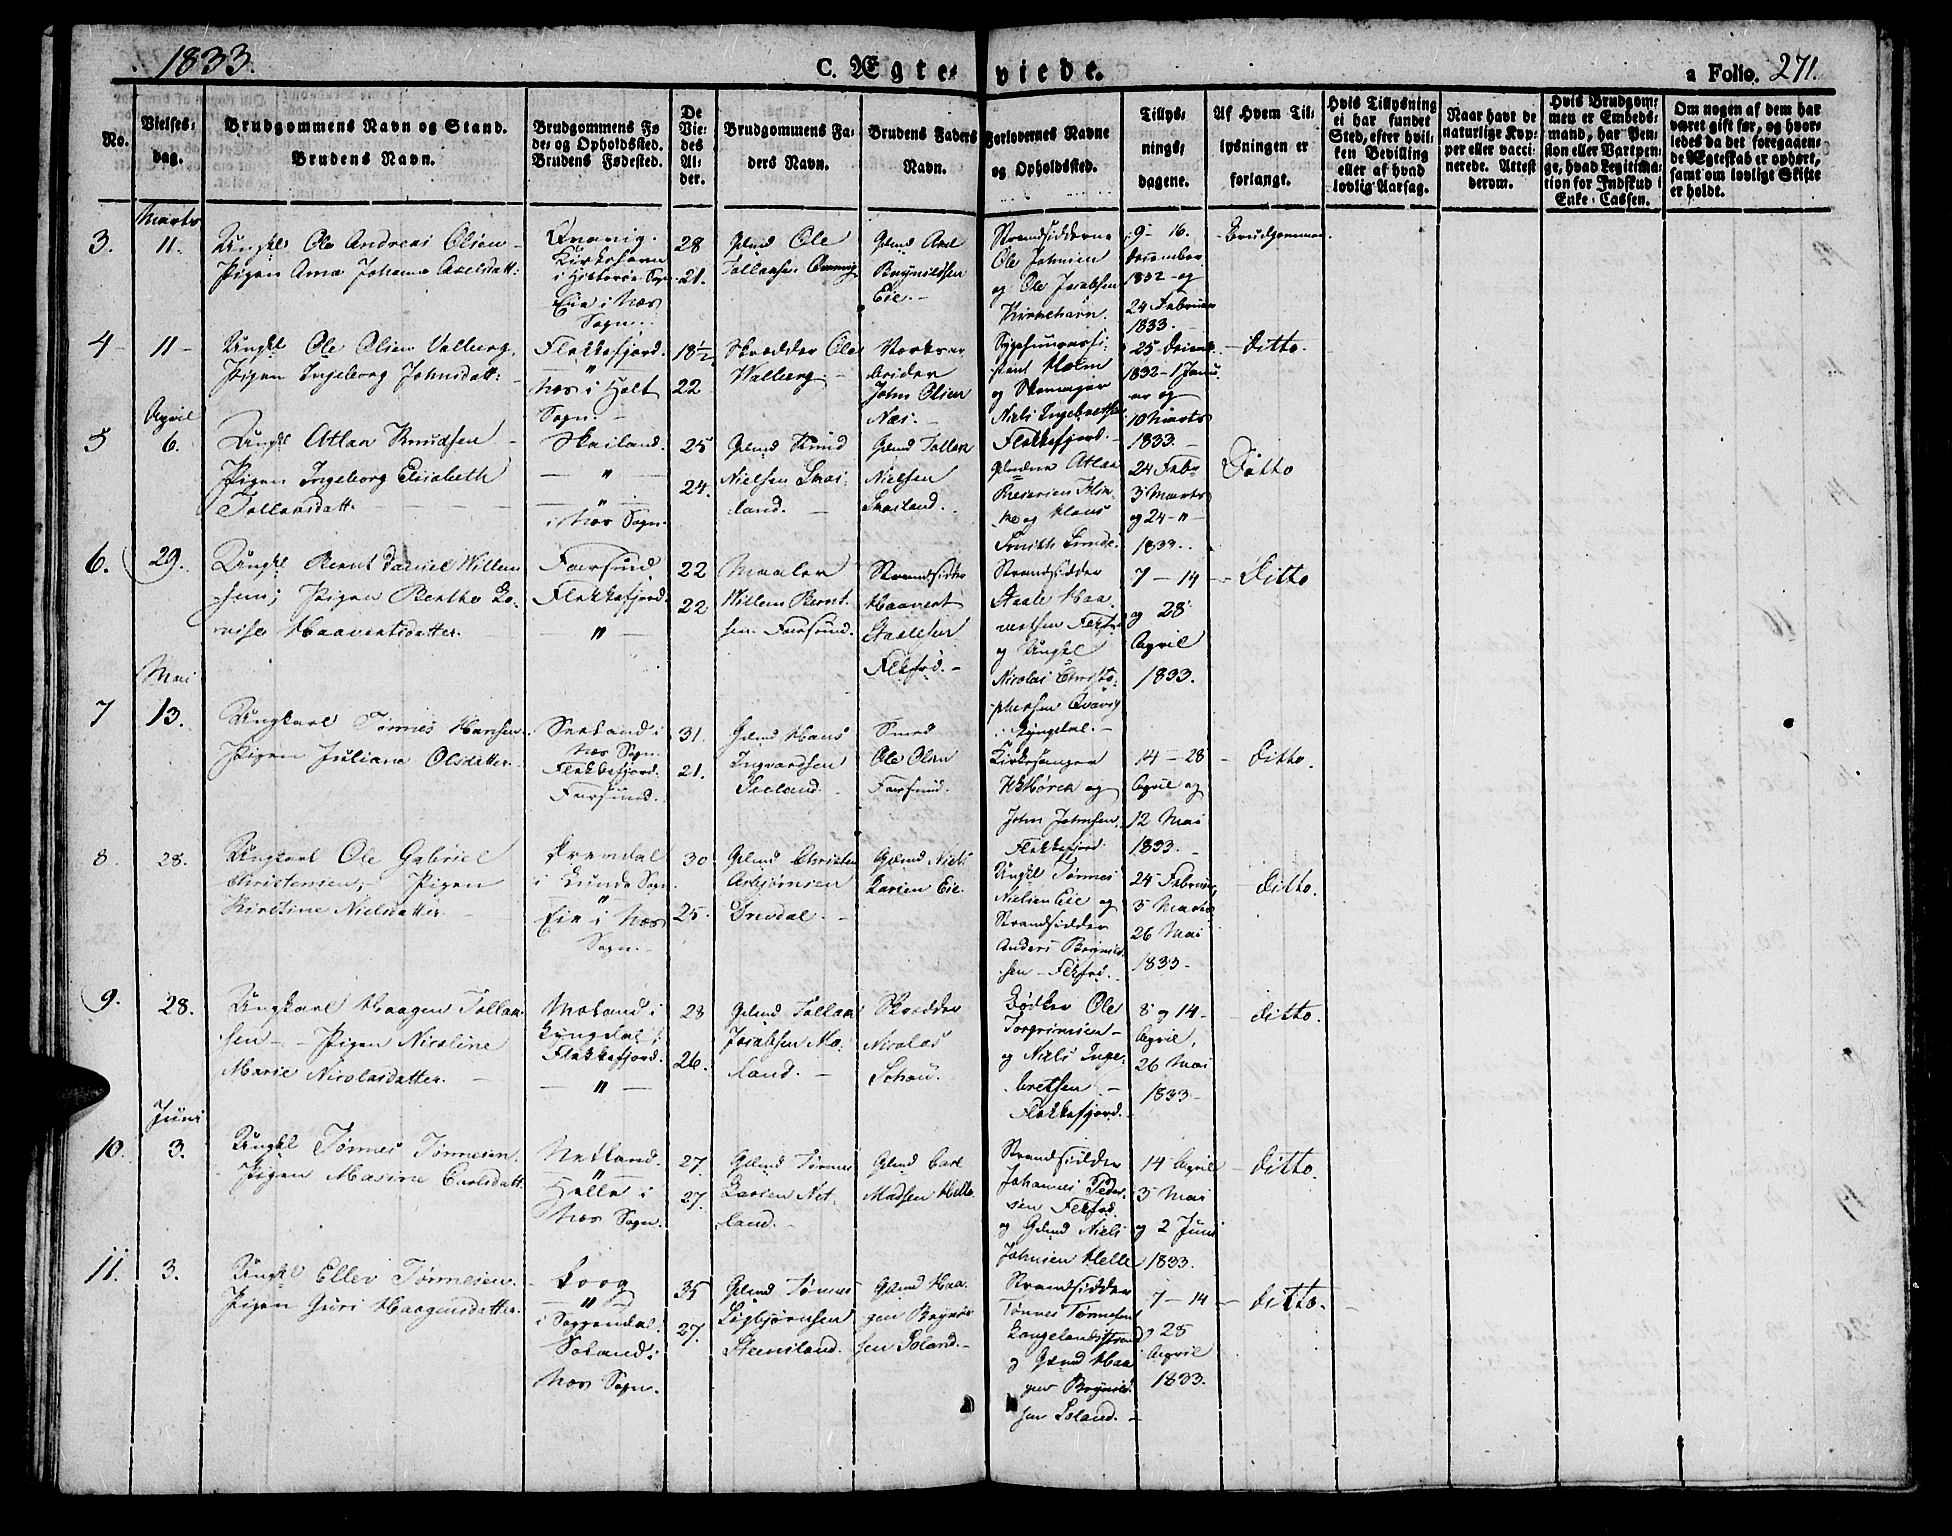 1833.
C. Ægteviede.
a Folio. 271.
No.
Vielses-
dag.
Brudgommens Navn og Stand.
Brudens Navn.
Brudgommens Fø
de- og Opholdssted.
Brudens Fødested.
De
Vie-
des
Al-
der.
Brudgommens Fa-
ders Navn.
Brudens Faders
Navn.
Forlovernes Navne
og Opholdssted.
Tillys-
nings-
dagene.
Af Hvem Til-
lysningen er
forlangt.
Hvis Tillysning
ei har fundet
Sted, efter hvil-
ken Bevilling
eller af hvad
lovlig Aarsag.
Naar havt de
naturlige Kop-
per eller vacci-
nerede. Attest
derom.
Hvis Brudgom-
men er Embeds-
mand, har Pen-
sion eller Vartpen-
ge, hvad Legitima-
tion for Indskud i
Enke-Cassen.
Om nogen af dem har
været gift før, og hvor-
ledes da det foregaaen-
de Ægteskab er ophørt,
samt om lovligt Skifte
er holdt.
Marts
3.
11.
Ungkl Ole Andreas Olsen
Pigen Ane Johanne Axelsdatt:
Kirkehavn
i Hitterøe Sogn
Eie i Næs
Sogn.
28
21.
Glmd Ole
Tollaksen
Glmd Axel
Brynildsen
Eie.
Strandsidderne
Ole Johnsen
og Ole Jacobsen
Kirkehavn.
9 - 16.
December
1832 og
24 Februar
1833.
Brudgommen.
4
11
Ungkl Ole Olsen Valberg.
Pigen Ingeborg Johnsdatt:
Flekkefjord.
"
Næs i Helt
Sogn.
18½
22
Skrædder Ole
Walberg.
John Olsen
Næs.
Holm
og Skomager
Niels Ingebretsen
Flekkefjord.
25 Decemb.
1832 - 1 Janu
ar og
10 Marts
1833.
ditto.
April
5
6.
Ungkl Atlak Knudsen
Pigen Ingeborg Elisabeth
Tollaksdatt.
Skailand.
"
"
i Næs Sogn.
25
24.
Glmd Knud
Nielsen Skai-
land.
Glmd Tollak
Nielsen
Skailand.
Atlak
og Klaus
Smith
24 Febr
3 Marts
og 24 "
1833.
Ditto
6.
29.
Ungkl Bernt Daniel Willum
sen; Pigen Berthe Lo-
vise Haavertsdatter.
Farsund
Flekkefjord.
"
22
22
Maaler
Willum Bernt-
sen Farsund.
Strandsidder
Haavert
Staalesen
Flekfrd.
Strandsidder
Staale Haa-
vertsen Flekfrd
og Ungkl
Nicolai Christo-
phersen
Qvinesdal.
7 - 14
og 28
April
1833.
Ditto
Mai
7
13.
Ungkarl Tønnes Hansen
Pigen Juliane Olsdatter.
Seeland i
Næs Sogn.
Flekkefjord.
Farsund.
31.
21.
Glmd Hans
Ingvardsen
Seeland.
Smed
Ole Olsen
Farsund.
Kirkesanger
og
John Johnsen
Flekkefjord
14 - 28
April og
12 Mai
1833.
ditto.
8.
28.
Ungkarl Ole Gabriel
Christensen; Pigen
Kirstine Nielsdatter.
i Lunde Sogn.
"
Eie i Næs
Sogn.
30
25.
Glmd Christen
Asbjørnsen
Glmd Niels
Larsen Eie.
Ungkl Tønnes
Nielsen Eie og
Strandsidder
Anders Brynild-
sen - Flekfrd.
24 Februar
3 Marts
26 Mai
1833.
ditto.
9.
28.
Ungkarl Haagen Tollak-
sen - Pigen Nicoline
Marie Nicolaisdatter.
Moland i
Flekkefjord.
"
28
26.
Glmd Tollak
Jacobsen Mo-
land.
Skrædder
Nicolai
Schou.
Bødker Ole
Torgrimsen
og Niels Inge-
bretsen
Flekkefjord.
8 og 14
April,
26 Mai
1833
ditto.
Juni
10.
3.
Ungkl Tønnes Tønnesen.
Pigen Maxine Carlsdatt.
Netland.
"
Helle i
Næs Sogn.
27.
27.
Glmd Tønnes
Larsen Net-
land.
Glmd Carl
Madsen Helle.
Strandsidder
Johannes Peder-
sen Flekfrd.
og Glmd Niels
Johnsen Helle
14 April
5 Mai
og 2 Juni
1833.
ditto.
11.
3.
Ungkl Ellev Tønnesen.
Pigen Guri Haagensdatter.
"
i Soggendal.
Soland i
Næs Sogn.
35
27.
Glmd Tønnes
Sigbjørnsen
Steensland.
Glmd Haa-
gen Brynild-
sen Soland.
Strandsidder
Tønnes Tønnesen
Langelandsstrand
og Glmd Haa
gen Brynild-
sen Soland.
7 - 14
28
April
1833.
ditto.